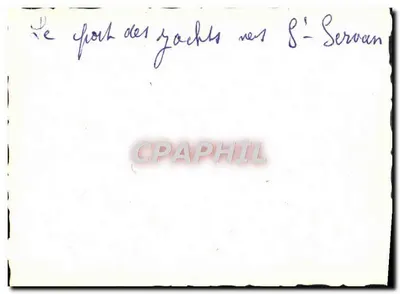 Le port des yachts vers St-Servan
CPAPHIL